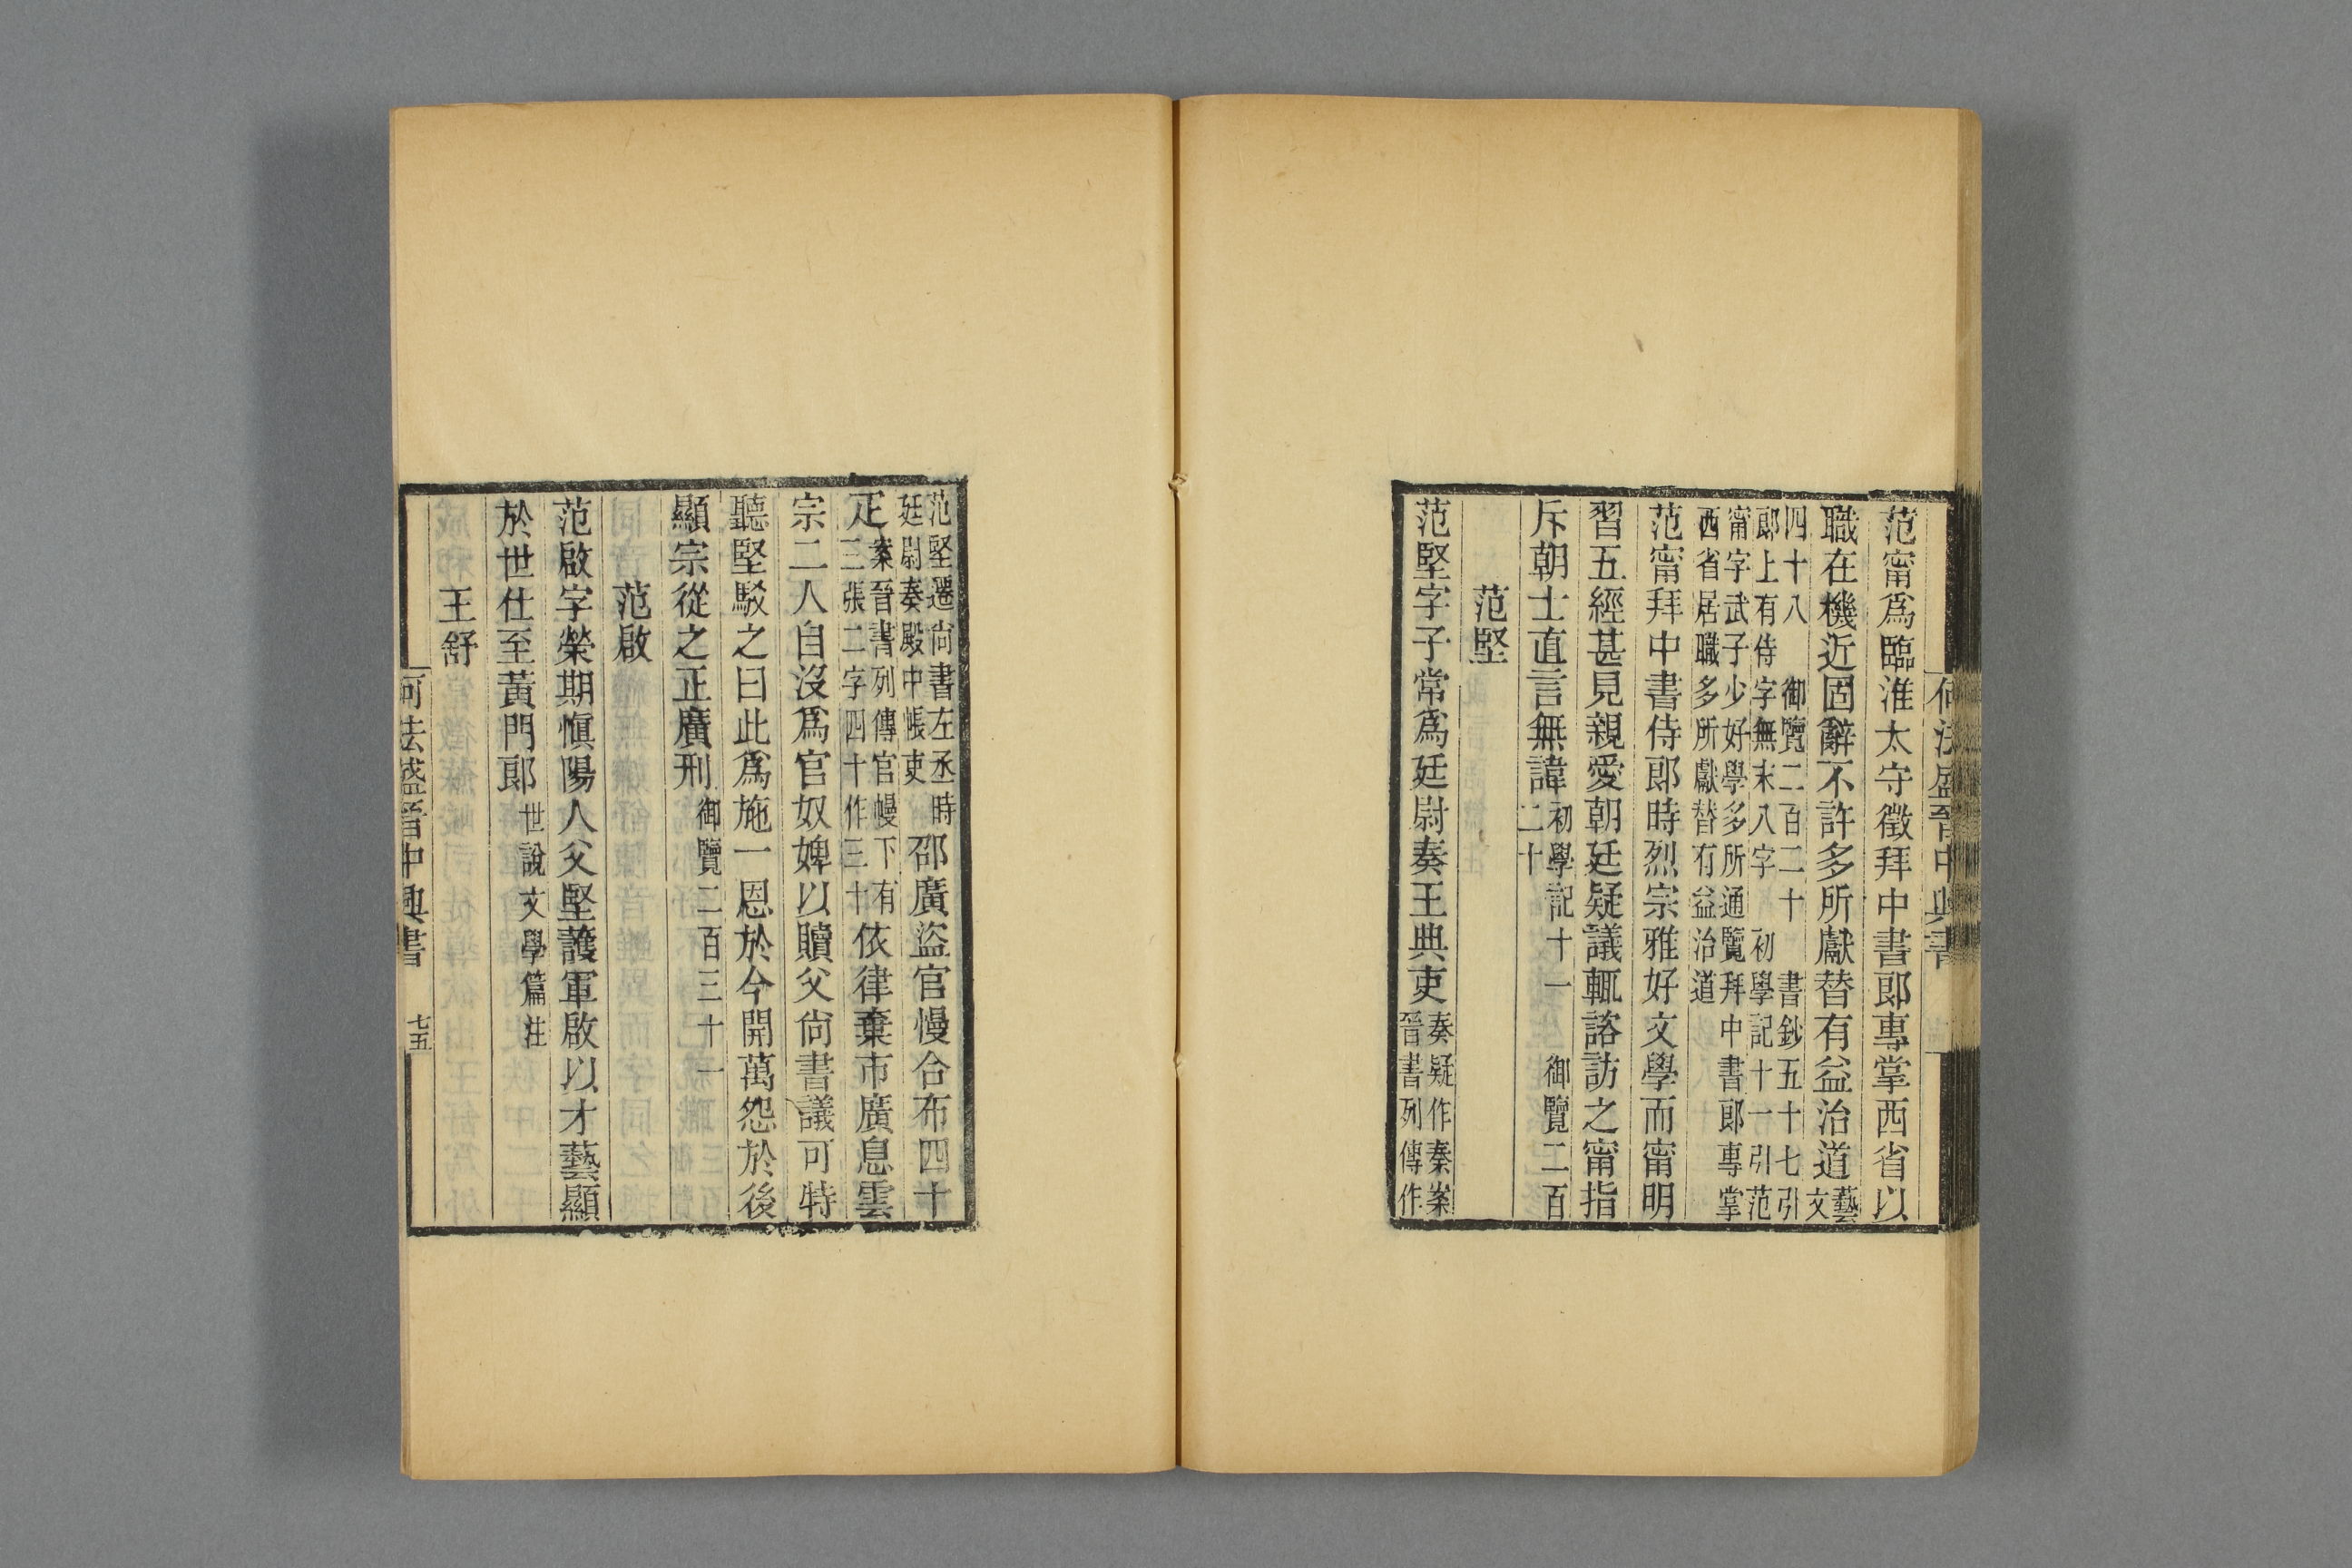 范甯爲臨淮太守徵拜中書郎專掌西省以
職在機近固辭不許多所獻替有益治道藝文
四十八　御覽二百二十　書鈔五十七引
郎上有侍字無末八字　初學記十一引范
甯字武子少好學多所通覽拜中書郎專掌
西省居職多所獻替有益治道
范甯拜中書侍郎時烈宗雅好文學而甯明
習五經甚見親愛朝廷疑議輒諮訪之甯指
斥朝士直言無諱初學記十一　御覽二百二十
范堅
范堅字子常爲廷尉奏王典吏奏疑作秦案晉書列傳作
范堅遷尚書左丞時廷尉奏殿中帳吏邵廣盜官幔合布四十
疋案晉書列傳官幔下有三張二字四十作三十依律棄市廣息雲
宗二人自沒爲官奴婢以贖父尚書議可特
聽堅駁之曰此爲施一恩於今開萬怨於後
顯宗從之正廣刑御覽二百三十一
范啟
范啟字榮期愼陽人父堅護軍啟以才藝顯
於世仕至黃門郎世說文學篇注
王舒
何法盛晉中興書　七五